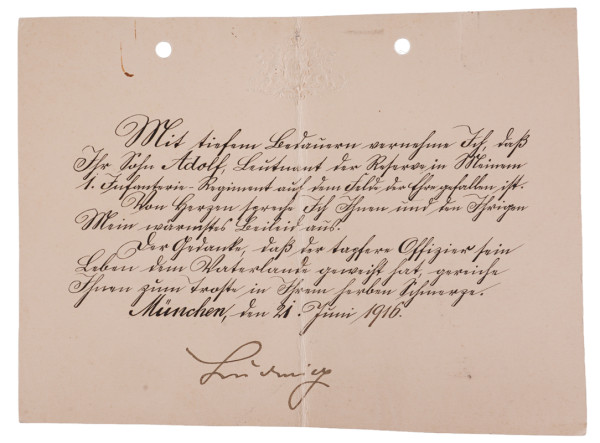 Mit tiefem Bedauern vernehme Ich, daß
Ihr Sohn Adolf, Leutnant der Reserve in Meinem
1. Infanterie-Regiment auf dem Felde der Ehre gefallen ist.
Von Herzen spreche Ich Ihnen und den Ihrigen
Mein wärmstes Beileid aus.
Der Gedanke, daß der tapfere Offizier sein
Leben dem Vaterlande geweiht hat, gereiche
Ihnen zum Troste in Ihrem herben Schmerze.
München, den 21. Juni 1916.
Ludwig